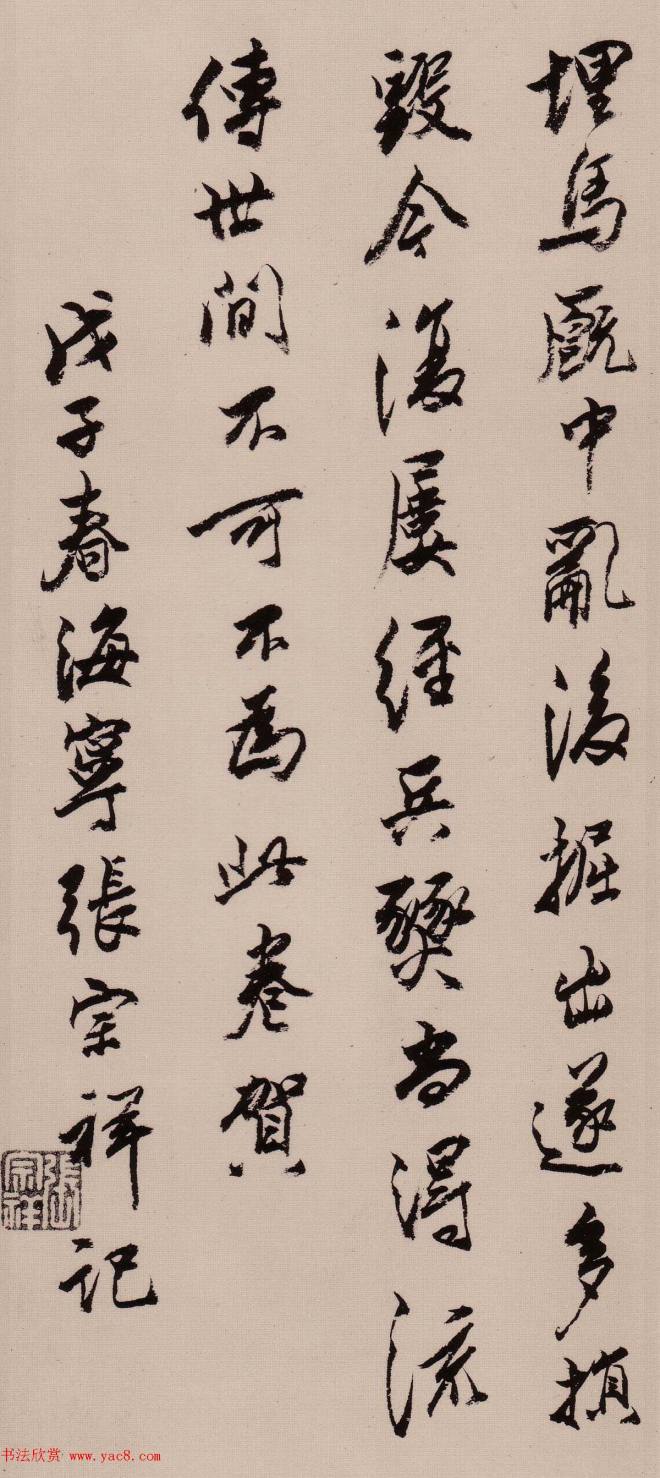 埋馬廐中亂後掘出遂多損
毀今復屢經兵燹尚得流
傳世間不可不為此卷賀
戊子春海寧張宗祥記
張宗祥
书法欣赏 www.yac8.com